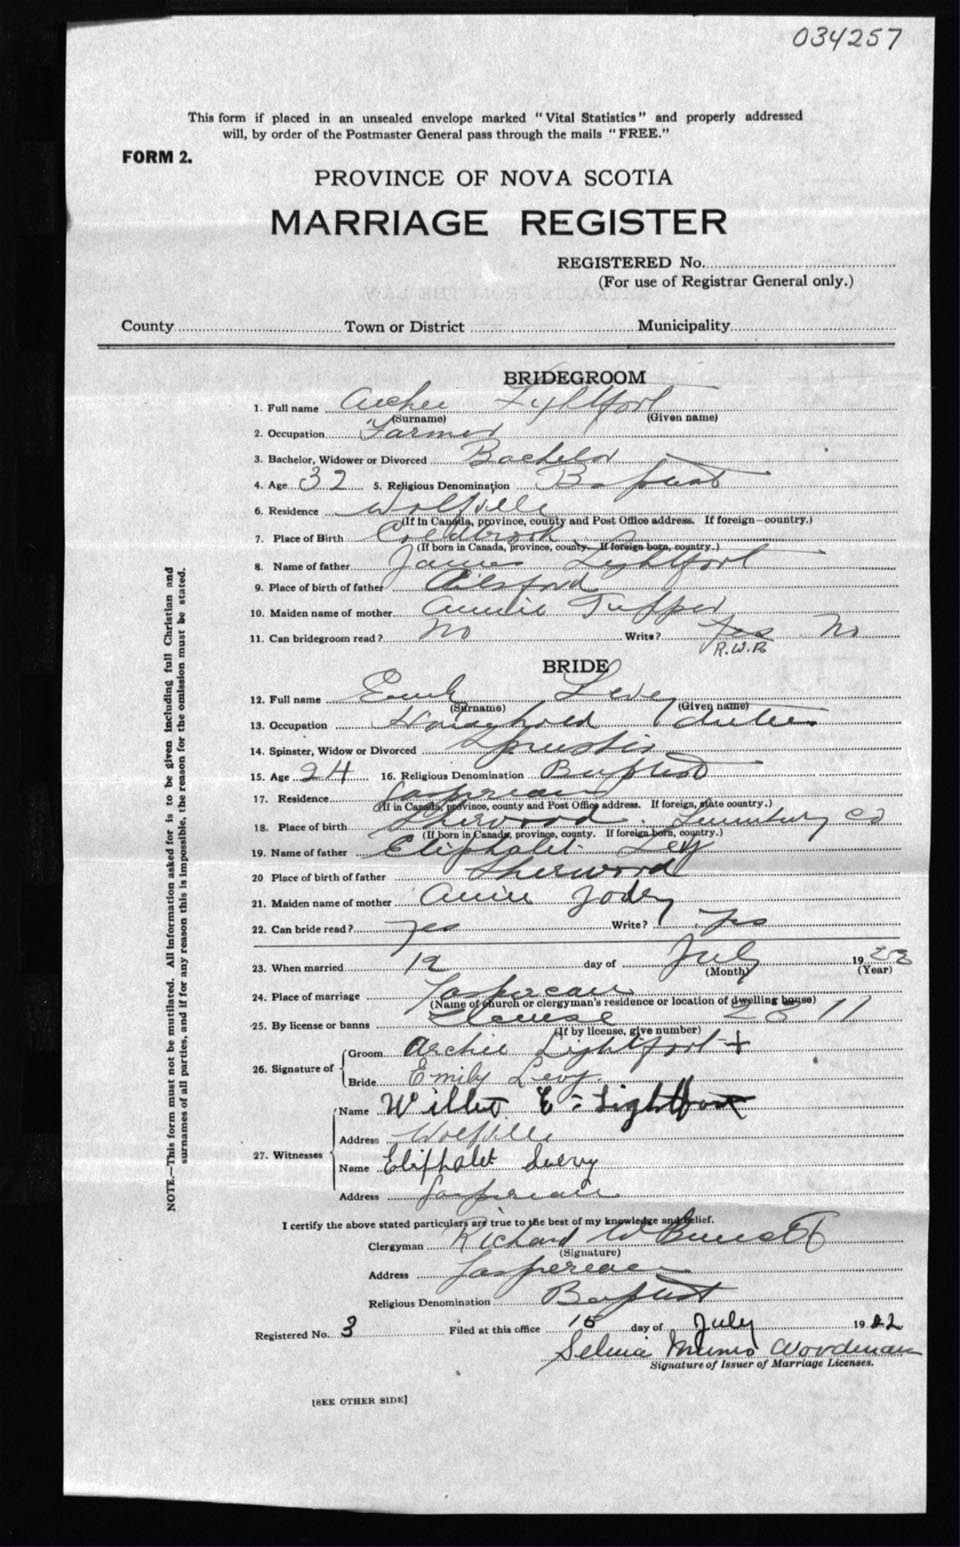 034257
This form if placed in an unsealed envelope marked "Vital Statistics" and properly addressed
will, by order of the Postmaster General pass through the mails "FREE."
FORM 2.
PROVINCE OF NOVA SCOTIA
MARRIAGE REGISTER
REGISTERED No.
(For use of Registrar General only.)
County Town or District Municipality
BRIDEGROOM
1. Full name Archie Lightfort
(Surname) (Given name)
2. Occupation Farmer
3. Bachelor, Widower or Divorced Bachelor
4. Age 32 5. Religious Denomination Baptist
6. Residence Wolfville
(If in Canada, province, county and Post Office address. If foreign—country.)
7. Place of Birth Coldbrook
(If born in Canada, province, county. If foreign born, country.)
8. Name of father James Lightfort
9. Place of birth of father Alsford
10. Maiden name of mother Annie Tupper
11. Can bridegroom read? No Write? Yes No
R.W.B
BRIDE
12. Full name Emily Levy
(Surname) (Given name)
13. Occupation Household duties
14. Spinster, Widow or Divorced Spinster
15. Age 24 16. Religious Denomination Baptist
17. Residence Gaspereau
(If in Canada, province, county and Post Office address. If foreign, state country.)
18. Place of birth Sherwood Lunenburg Co
(If born in Canada, province, county. If foreign born, country.)
19. Name of father Eliphalet Levy
20 Place of birth of father Sherwood
21. Maiden name of mother Annie
22. Can bride read? Yes Write? Yes
23. When married 12 day of July 1922
(Month) (Year)
24. Place of marriage Gaspereau
(Name of church or clergyman's residence or location of dwelling house)
25. By license or banns License 2311
(If by license, give number)
26. Signature of
Groom Archie Lightfort +
Bride Emily Levy.
27. Witnesses
Name Willet E. Lightfoot
Address Wolfville
Name Eliphalet Levy
Address Gaspereau
I certify the above stated particulars are true to the best of my knowledge and belief.
Clergyman Richard W Bennett
(Signature)
Address Gaspereau
Religious Denomination Baptist
Registered No. 3 Filed at this office 15 day of July 1922
Selina Munro Woodman
Signature of Issuer of Marriage Licenses.
[SEE OTHER SIDE]
NOTE.—This form must not be mutilated. All information asked for is to be given including full Christian and
surnames of all parties, and if for any reason this is impossible, the reason for the omission must be stated.